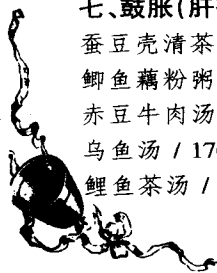 七、鼓胀(肝
蚕豆壳清茶
鲫鱼藕粉粥
赤豆牛肉汤
乌鱼汤 / 17
鲤鱼茶汤 /